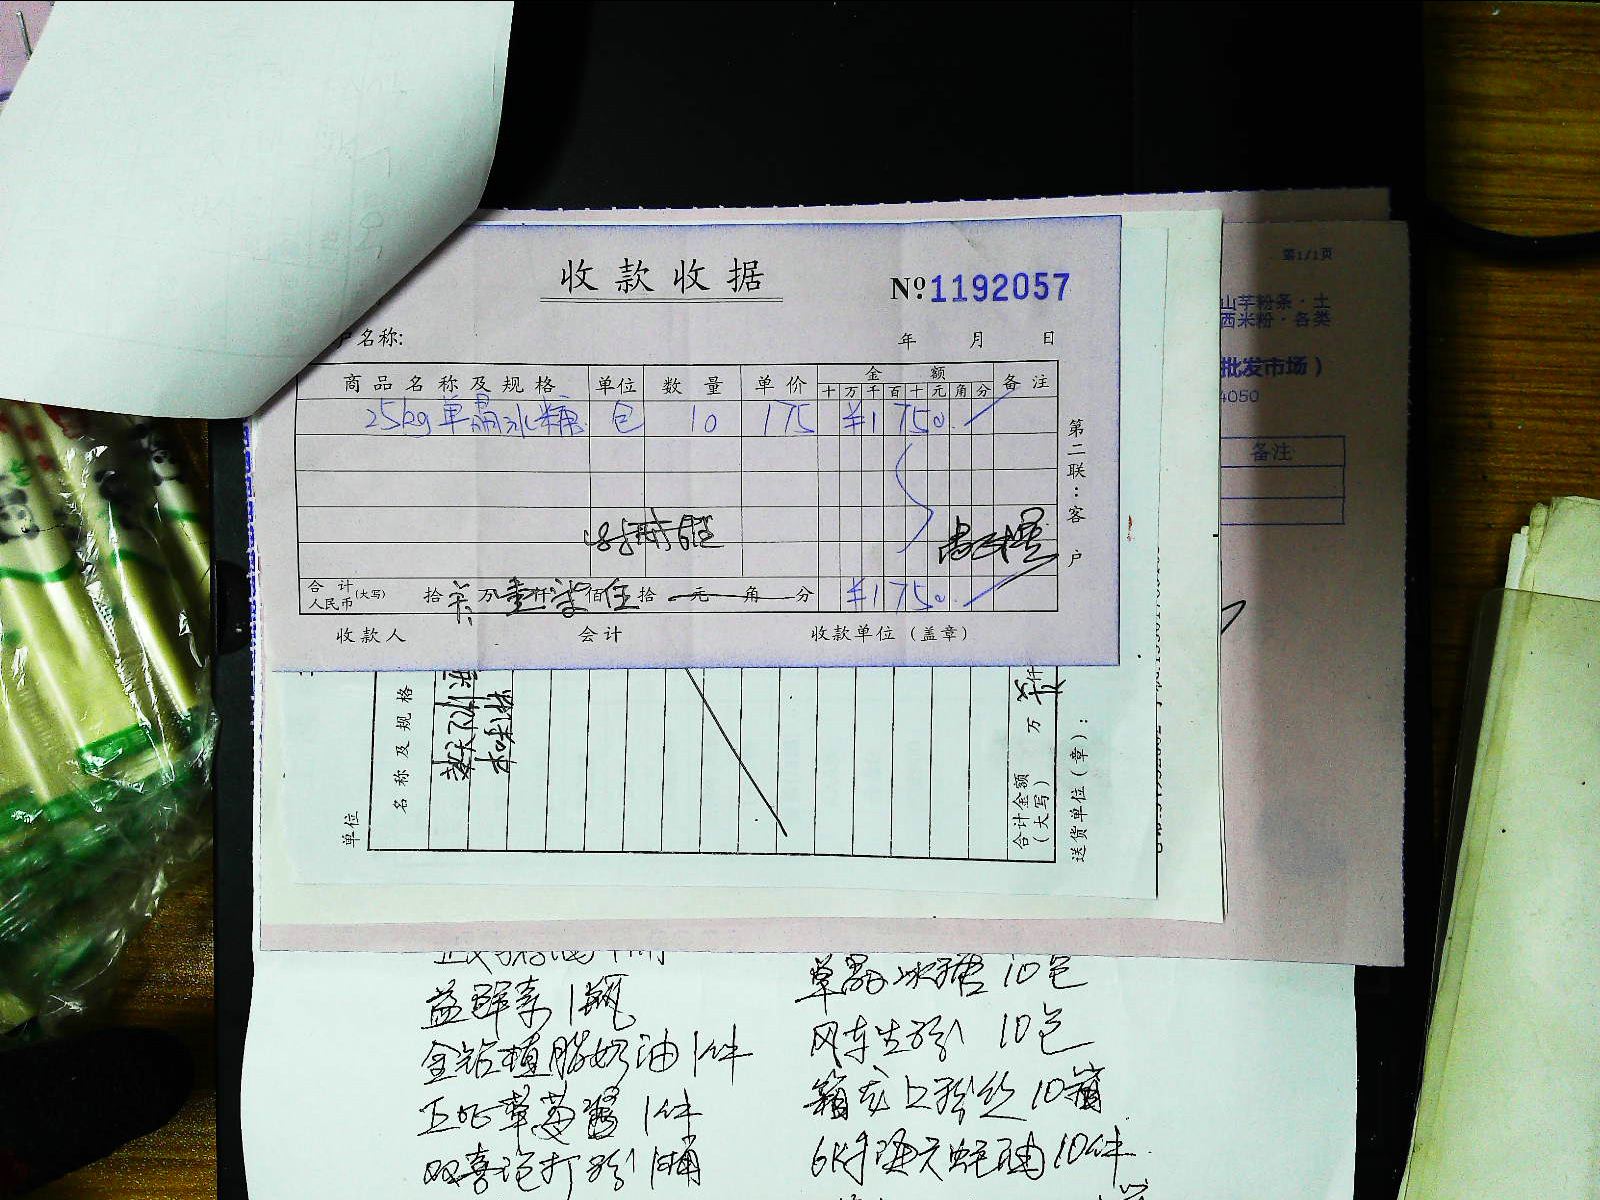 收款收据
№1192057
户名称:
年 月 日
商品名称及规格 单位 数量 单价 金额 备注
十 万 千 百 十 元 角 分
25kg单晶冰糖 包 10 175 ¥1750.
第二联：客户
合计人民币(大写) 拾 万壹仟柒佰伍拾 元 角 分 ¥1750.
收款人 会计 收款单位（盖章）
第1/1页
山芋粉条·土
西米粉·各类
批发市场）
4050
备注
单位
名称及规格
合计金额（大写） 万 仟
送货单位（章）：
益鲜素 1瓶
金钻植脂奶油 1件
草莓酱 1件
双喜泡打粉 1桶
单晶冰糖 10包
风车生粉 10包
龙口粉丝 10箱
10件